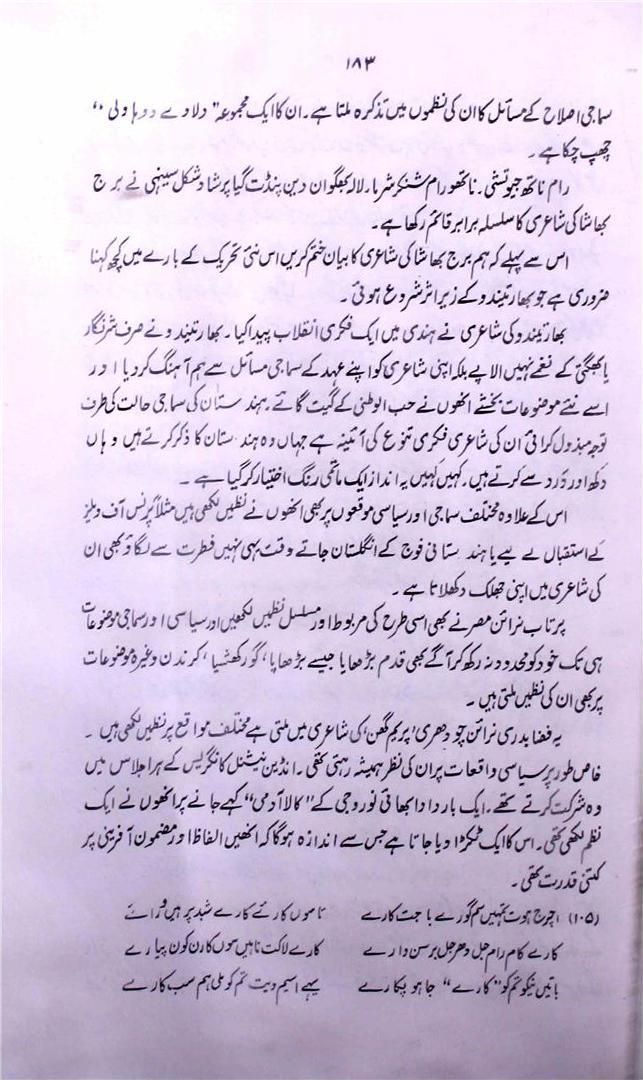 ۱۸۳
سماجی اصلاح کے مسائل کا ان کی نظموں میں تذکرہ ملتا ہے۔ ان کا ایک مجموعہ "دلاوے دوہاولی"
چھپ چکا ہے۔
رام ناتھ جیوتشی۔ ناتھو رام شنکر شرما۔ لالہ بھگوان دین پنڈت گیا پرشاد شکل سینہی نے برج
بھاشا کی شاعری کا سلسلہ برابر قائم رکھا ہے۔
اس سے پہلے کہ ہم برج بھاشا کی شاعری کا بیان ختم کریں اس نئی تحریک کے بارے میں کچھ کہنا
ضروری ہے جو بھارتیندو کے زیر اثر شروع ہوئی۔
بھارتیندو کی شاعری نے ہندی میں ایک فکری انقلاب پیدا کیا۔ بھارتیندو نے صرف شرنگار
یا بھگتی کے نغمے نہیں الاپے بلکہ اپنی شاعری کو اپنے عہد کے سماجی مسائل سے ہم آہنگ کر دیا اور
اسے نئے موضوعات بخشے انھوں نے حب الوطنی کے گیت گائے۔ ہندستان کی سماجی حالت کی طرف
توجہ مبذول کرائی ان کی شاعری فکری تنوع کی آئینہ ہے جہاں وہ ہندستان کا ذکر کرتے ہیں وہاں
دکھ اور درد سے کرتے ہیں۔ کہیں کہیں یہ انداز ایک ماتمی رنگ اختیار کر گیا ہے۔
اس کے علاوہ مختلف سماجی اور سیاسی موقعوں پر بھی انھوں نے نظمیں لکھی ہیں مثلاً پرنس آف ویلز
کے استقبال کے لیے یا ہندستانی فوج کے انگلستان جاتے وقت یہی نہیں فطرت سے لگاؤ بھی ان
کی شاعری میں اپنی جھلک دکھلاتا ہے۔
پرتاپ نرائن مصر نے بھی اسی طرح کی مربوط اور مسلسل نظمیں لکھیں اور سیاسی اور سماجی موضوعات
ہی تک خود کو محدود نہ رکھ کر آگے بھی قدم بڑھایا جیسے بڑھاپا، گورکھشیا، کرندن وغیرہ موضوعات
پر بھی ان کی نظمیں ملتی ہیں۔
یہ فضا بدری نرائن چودھری 'پریم گھن' کی شاعری میں ملتی ہے مختلف مواقع پر نظمیں لکھی ہیں۔
خاص طور پر سیاسی واقعات پر ان کی نظر ہمیشہ رہتی تھی۔ انڈین نیشنل کانگریس کے ہر اجلاس میں
وہ شرکت کرتے تھے۔ ایک بار دادا بھائی نوروجی کے "کالا آدمی" کہے جانے پر انھوں نے ایک
نظم لکھی تھی۔ اس کا ایک ٹکڑا دیا جاتا ہے جس سے اندازہ ہوگا کہ انھیں الفاظ اور مضمون آفرینی پر
کتنی قدرت تھی۔
(۱۰۵) اچرج ہوت تمہیں سم گورے باجت کارے تاسوں کارے کارے شبد پر ہیں وارے
کارے کام رام جل دھر جل برسن وارے کارے لاگت تاہیں سوں کارن کون پیارے
باتیں نیکو تم کو "کارے" جاہو پکارے یہے اسیم دیت تم کو ملی ہم سب کارے